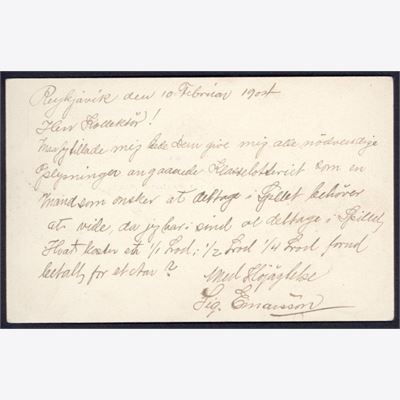 Reykjavik den 10 Februar 1904
Herr Kollektör!
mig bede Dem give mig alle nödvendige
Oplysninger angaaende Klasselotteriet som en
mand som önsker at deltage i Spillet behöver
at vide, da jeg har i sind at deltage i Spillet,
Hvat koster et 1/1 Lod; 1/2 Lod 1/4 Lod forud
betalt for et Aar?
med Höjagtelse
Sig.